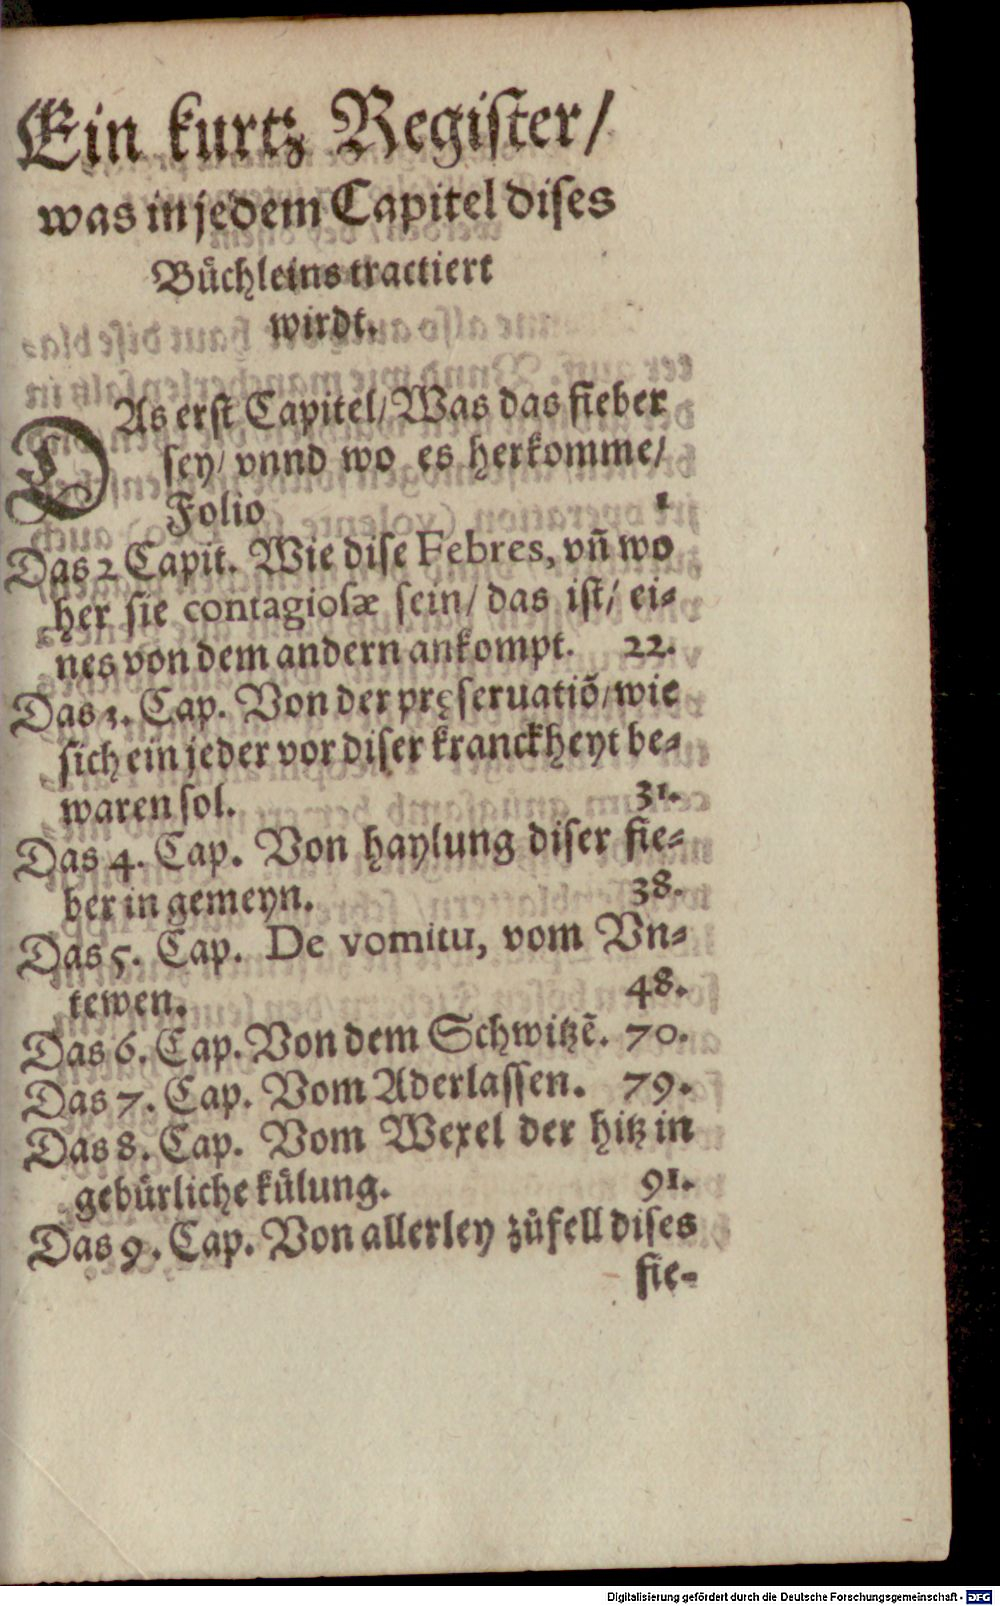 Ein kurtz Register/
was in jedem Capitel dises
Büchleins tractiert
wirdt.
DAs erst Capitel/ Was das fieber
sey/ vnnd wo es herkomme/
Folio 1
Das 2 Capit. Wie dise Febres, vñ wo
her sie contagiosæ sein/ das ist/ ei-
nes von dem andern ankompt. 22.
Das 3. Cap. Von der pręseruatiõ/ wie
sich ein jeder vor diser kranckheyt be-
waren sol. 31.
Das 4. Cap. Von haylung diser fie-
ber in gemeyn. 38.
Das 5. Cap. De vomitu, vom Vn-
tewen. 48.
Das 6. Cap. Von dem Schwitzẽ. 70.
Das 7. Cap. Vom Aderlassen. 79.
Das 8. Cap. Vom Wexel der hitz in
gebürliche külung. 91.
Das 9. Cap. Von allerley zůfell dises
fie-
Digitalisierung gefördert durch die Deutsche Forschungsgemeinschaft - DFG